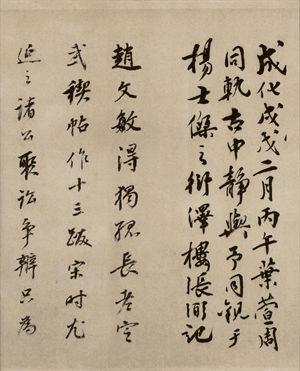 成化戊戌二月丙午葉萱周
同軌古中靜與予同觀于
楊士傑之衍澤樓張淵記
趙文敏得獨孤長老定
武禊帖作十三跋宋時尤
延之諸公聚訟爭辯只為